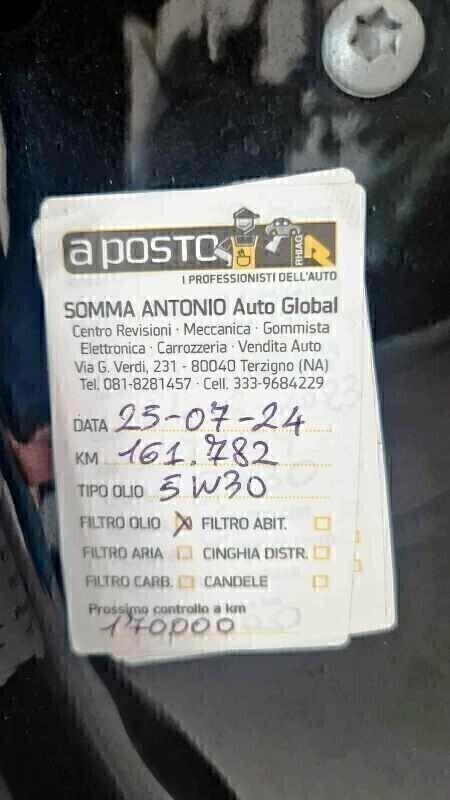 a posto
RHIAG
I PROFESSIONISTI DELL'AUTO
SOMMA ANTONIO Auto Global
Centro Revisioni · Meccanica · Gommista
Elettronica · Carrozzeria · Vendita Auto
Via G. Verdi, 231 - 80040 Terzigno (NA)
Tel. 081-8281457 · Cell. 333-9684229
DATA 25-07-24
KM 161.782
TIPO OLIO 5W30
FILTRO OLIO FILTRO ABIT.
FILTRO ARIA CINGHIA DISTR.
FILTRO CARB. CANDELE
Prossimo controllo a km
170000